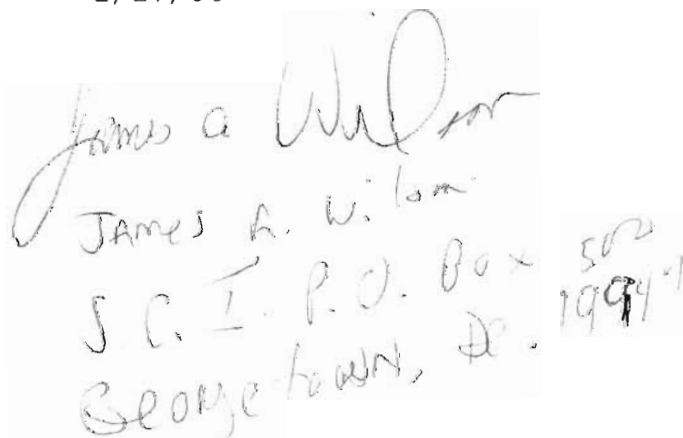 James A Wilson
JAMES A. Wilson
S C. I. P.O. Box 500
Georgetown, De. 19947